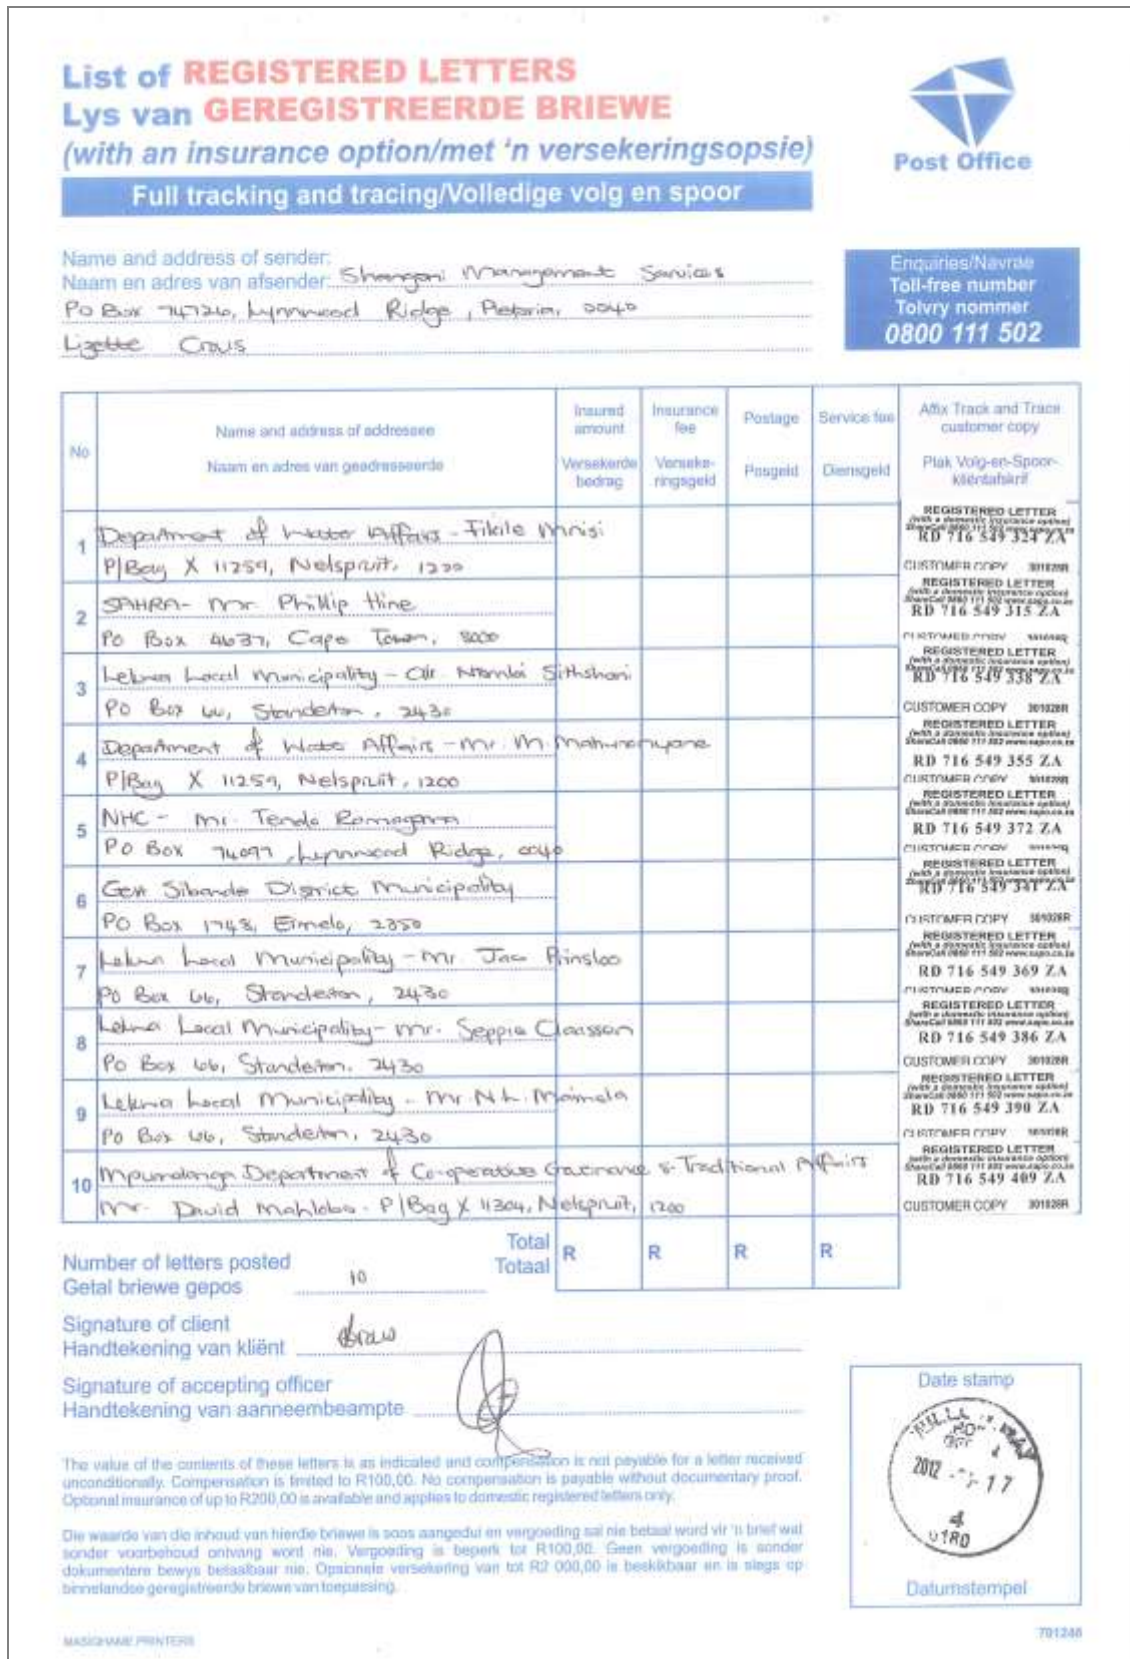 List of REGISTERED LETTERS
Lys van GEREGISTREERDE BRIEWE
(with an insurance option/met 'n versekeringsopsie)
Full tracking and tracing/Volledige volg en spoor
Post Office
Name and address of sender:
Naam en adres van afsender: Shangoni Management Services
PO Box 74726, Lynnwood Ridge, Pretoria, 0040
Lizette Crous
Enquiries/Navrae
Toll-free number
Tolvry nommer
0800 111 502
No
Name and address of addressee
Naam en adres van geadresseerde
Insured amount
Versekerde bedrag
Insurance fee
Verseke-ringsgeld
Postage
Posgeld
Service fee
Diensgeld
Affix Track and Trace customer copy
Plak Volg-en-Spoor-kliëntafskrif
1 Department of Water Affairs - Fikile Mnisi
P/Bag X 11259, Nelspruit, 1200
REGISTERED LETTER
(with a domestic insurance option)
ShareCall 0860 111 502 www.sapo.co.za
RD 716 549 324 ZA
CUSTOMER COPY 301028R
2 SAHRA - Mr. Phillip Hine
PO Box 4637, Cape Town, 8000
REGISTERED LETTER
(with a domestic insurance option)
ShareCall 0860 111 502 www.sapo.co.za
RD 716 549 315 ZA
CUSTOMER COPY 301028R
3 Lekwa Local Municipality - Cllr. Sithshoni
PO Box 66, Standerton, 2430
REGISTERED LETTER
(with a domestic insurance option)
ShareCall 0860 111 502 www.sapo.co.za
RD 716 549 338 ZA
CUSTOMER COPY 301028R
4 Department of Water Affairs - Mr. M.
P/Bag X 11259, Nelspruit, 1200
REGISTERED LETTER
(with a domestic insurance option)
ShareCall 0860 111 502 www.sapo.co.za
RD 716 549 355 ZA
CUSTOMER COPY 301028R
5 NHC - Mr. Tendo
PO Box 74097, Lynnwood Ridge, 0040
REGISTERED LETTER
(with a domestic insurance option)
ShareCall 0860 111 502 www.sapo.co.za
RD 716 549 372 ZA
CUSTOMER COPY
6 Gert Sibande District Municipality
PO Box 1748, Ermelo, 2350
REGISTERED LETTER
(with a domestic insurance option)
ShareCall 0860 111 502 www.sapo.co.za
RD 716 549 341 ZA
CUSTOMER COPY 301028R
7 Lekwa Local Municipality - Mr. Jaco Prinsloo
PO Box 66, Standerton, 2430
REGISTERED LETTER
(with a domestic insurance option)
ShareCall 0860 111 502 www.sapo.co.za
RD 716 549 369 ZA
CUSTOMER COPY 301028R
8 Lekwa Local Municipality - Mr. Seppie Claassen
PO Box 66, Standerton, 2430
REGISTERED LETTER
(with a domestic insurance option)
ShareCall 0860 111 502 www.sapo.co.za
RD 716 549 386 ZA
CUSTOMER COPY 301028R
9 Lekwa Local Municipality - Mr. N.L. Maimela
PO Box 66, Standerton, 2430
REGISTERED LETTER
(with a domestic insurance option)
ShareCall 0860 111 502 www.sapo.co.za
RD 716 549 390 ZA
CUSTOMER COPY 301028R
10 Mpumalanga Department of Co-operative Governance & Traditional Affairs
Mr. David Mahlobo - P/Bag X 11304, Nelspruit, 1200
REGISTERED LETTER
(with a domestic insurance option)
ShareCall 0860 111 502 www.sapo.co.za
RD 716 549 409 ZA
CUSTOMER COPY 301028R
Total
Totaal
R R R R
Number of letters posted
Getal briewe gepos 10
Signature of client
Handtekening van kliënt
Signature of accepting officer
Handtekening van aanneembeampte
The value of the contents of these letters is as indicated and compensation is not payable for a letter received
unconditionally. Compensation is limited to R100,00. No compensation is payable without documentary proof.
Optional insurance of up to R200,00 is available and applies to domestic registered letters only.
Die waarde van die inhoud van hierdie briewe is soos aangedui en vergoeding sal nie betaal word vir 'n brief wat
sonder voorbehoud ontvang word nie. Vergoeding is beperk tot R100,00. Geen vergoeding is sonder
dokumentere bewys betaalbaar nie. Opsionele versekering van tot R2 000,00 is beskikbaar en is slegs op
binnelandse geregistreerde briewe van toepassing.
Date stamp
2012
17
4
Datumstempel
MASIGHAME PRINTERS
701246